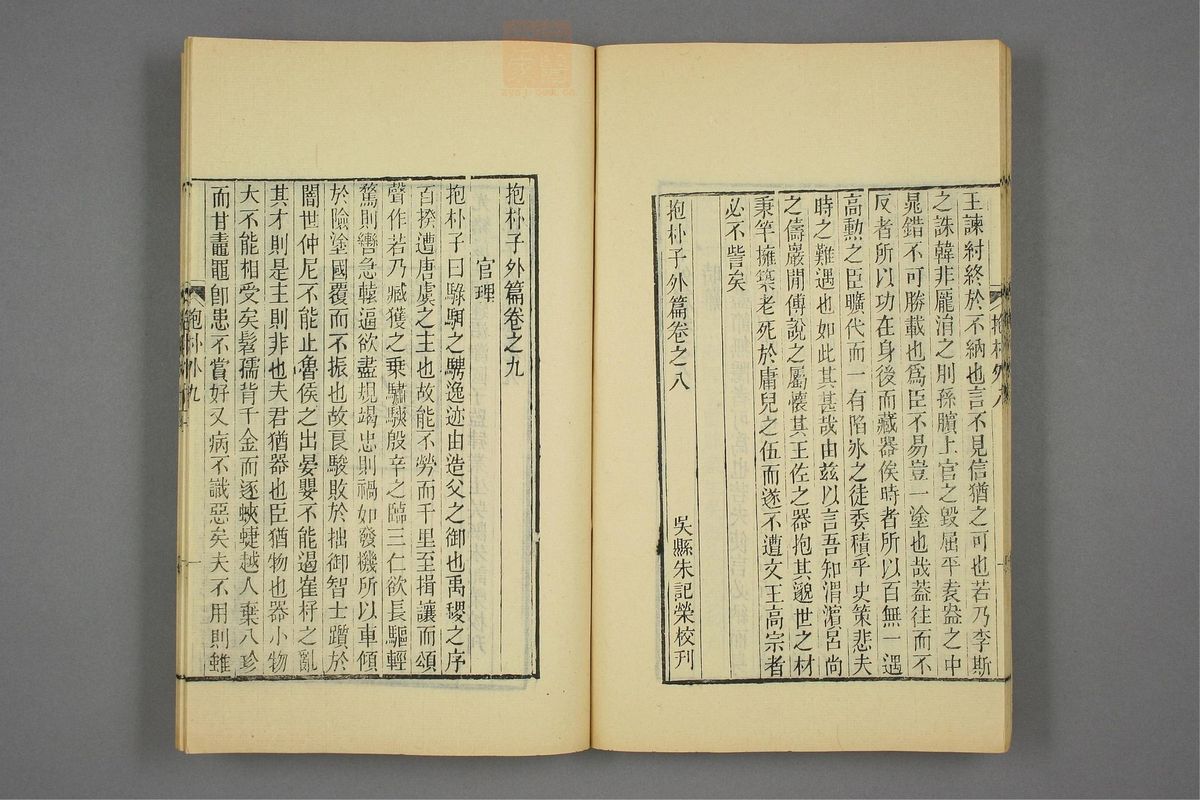 王諫紂終於不納也言不見信猶之可也若乃李斯
之誅韓非龐涓之刖孫臏上官之毀屈平袁盎之中
晁錯不可勝載也為臣不易豈一塗也哉蓋往而不
反者所以功在身後而藏器俟時者所以百無一遇
高勳之臣曠代而一有陷冰之徒委積乎史策悲夫
時之難遇也如此其甚哉由茲以言吾知渭濱呂尚
之儔巖閒傅說之屬懷其王佐之器抱其邈世之材
秉竿擁築老死於庸兒之伍而遂不遭文王高宗者
必不訾矣
抱朴子外篇卷之八
吳縣朱記榮校刊
抱朴外八
抱朴子外篇卷之九
官理
抱朴子曰騄駬之騁逸迹由造父之御也禹稷之序
百揆遭唐虞之主也故能不勞而千里至揖讓而頌
聲作若乃臧獲之乘驌騻殷辛之臨三仁欲長驅輕
騖則轡急轅逼欲盡規竭忠則禍如發機所以車傾
於險塗國覆而不振也故良駿敗於拙御智士躓於
闇世仲尼不能止魯侯之出晏嬰不能遏崔杼之亂
其才則是主則非也夫君猶器也臣猶物也器小物
大不能相受矣髫孺背千金而逐蛺蝶越人棄八珍
而甘鼃黽卽患不賞好又病不識惡矣夫不用則雖
抱朴外九